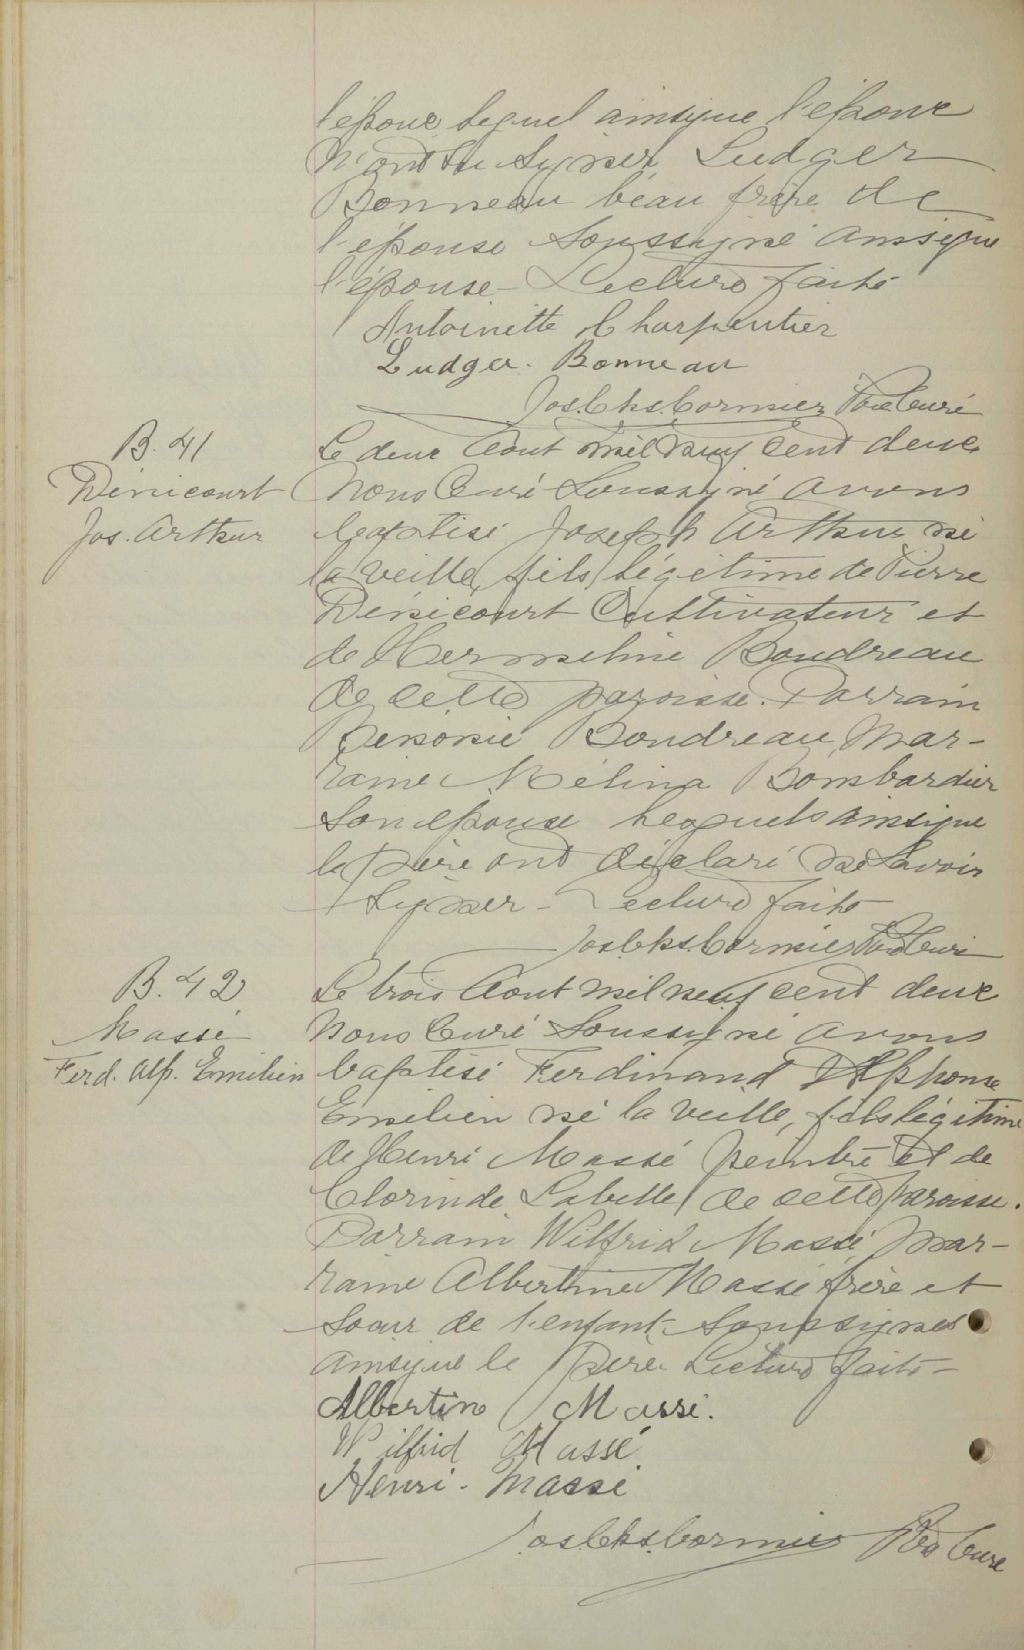 l'époux lequel ainsique l'époux
n'ont su signer, Ludger
Bonneau beau frère de
l'épouse soussigné ainsique
l'épouse - Lecture faite
Antoinette Charpentier
Ludger. Bonneau
Jos. Chs. Cormier Ptre Curé
B. 41
Dénicourt
Jos. Arthur
Le deux Aout mil neuf cent deux
Nous Curé soussigné avons
baptisé Joseph Arthur né
la veille, fils légitime de Pierre
Dénicourt Cultivateur et
de Hermeline Boudreau
de cette paroisse. Parrain
Boudreau, Mar-
raine Mélina Bombardier
son épouse lesquels ainsique
le père ont déclaré ne savoir
signer - Lecture faite
Jos Chs. Cormier Ptre Curé
B. 42
Massé
Ferd. Alp. Emilien
Le trois Aout mil neuf cent deux
Nous Curé soussigné avons
baptisé Ferdinand Alphonse
Emilien né la veille, fils légitime
de Henri Massé peintre et de
Clorinde Labelle de cette paroisse.
Parrain Wilfrid Massé, Mar-
raine Albertine Massé frère et
soeur de l'enfant soussignés
ainsique le père. Lecture faite -
Albertine Massé.
Wilfrid Massé
Henri. Massé
Jos Chs Cormier Ptre Curé